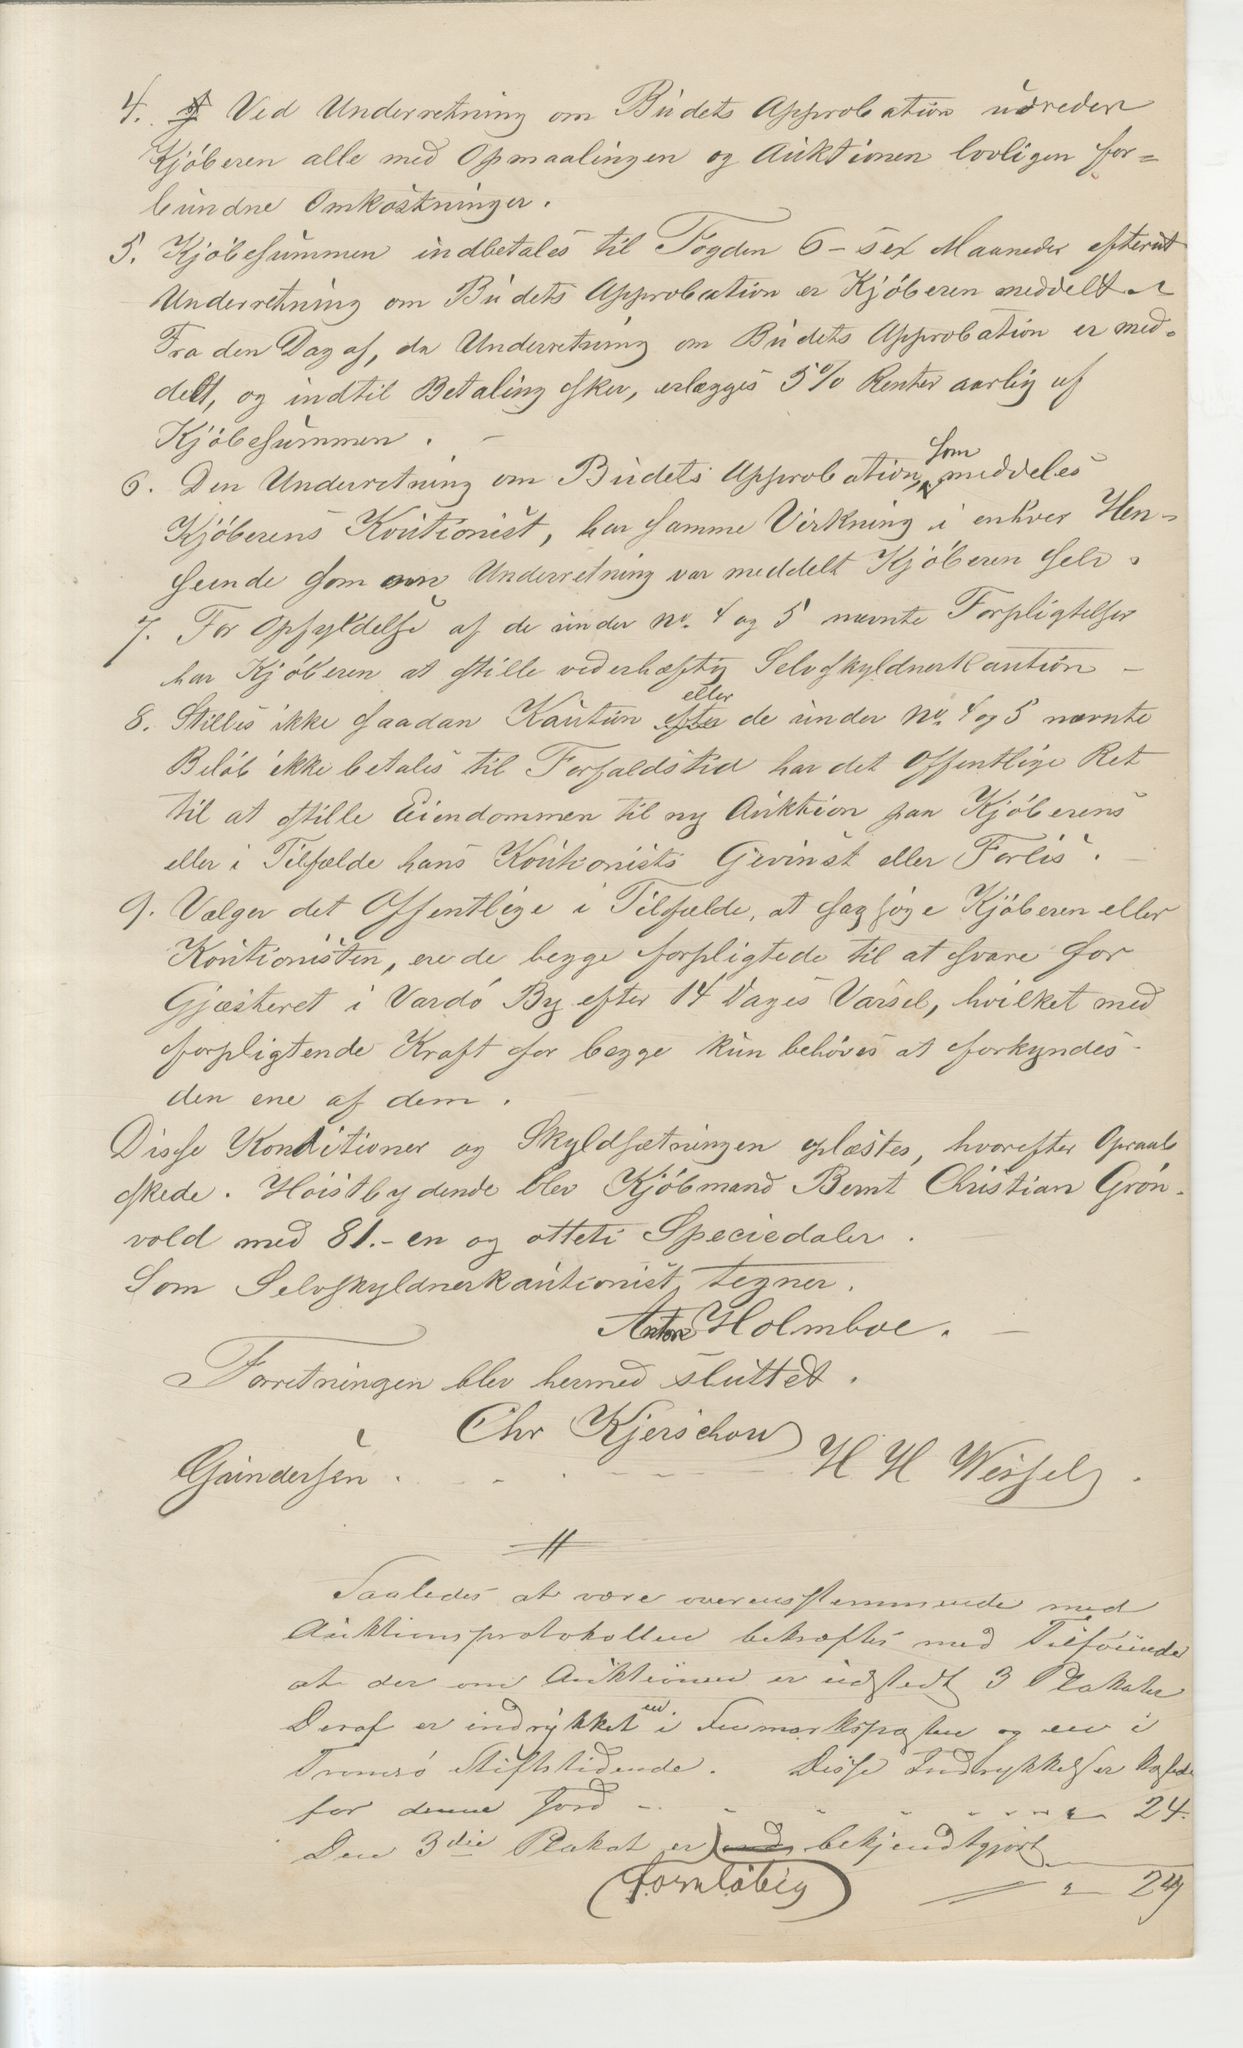 4. Ved Underretning om Budets Approbation udreder
Kjøberen alle med Opmaalingen og Auktionen lovligen for=
bundne Omkostninger.
5. Kjøbesummen indbetales til Fogden 6 - sex Maaneder efterat
Underretning om Budets Approbation er Kjøberen meddelt.
Fra den Dag af, da Underretning om Budets Approbation er med-
delt, og indtil Betaling sker, erlægges 5% Renter aarlig af
Kjøbesummen. -
6. Den Underretning om Budets Approbation, som meddeles
Kjøberens Kautionist, har samme Virkning i enhver Hen-
seende som om Underretning var meddelt Kjøberen selv.
7. For Opfyldelse af de under No. 4 og 5 nævnte Forpligtelser
har Kjøberen at stille vederhæftig Selvskyldnerkaution -
8. Stilles ikke saadan Kaution eller de under No. 4 og 5 nævnte
Beløb ikke betales til Forfaldstid har det Offentlige Ret
til at stille Eiendommen til ny Auktion paa Kjøberens
eller i Tilfælde hans Kautionists Gevinst eller Forlis.
9. Vælger det Offentlige i Tilfælde, at sagsøge Kjøberen eller
Kautionisten, ere de begge forpligtede til at svare for
Gjæsteret i Vardø By efter 14 Dages Varsel, hvilket med
forpligtende Kraft for begge kun behøves at forkyndes
den ene af dem.
Disse Konditioner og Skyldsætningen oplæstes, hvorefter Opraab
skede. Høistbydende blev Kjøbmand Bernt Christian Grøn-
vold med 81.- en og otteti Speciedaler.
Som Selvskyldnerkautionist tegner.
Anton Holmboe. -
Forretningen blev hermed sluttet.
Chr Kjerschow
Gundersen. H H Wessel.
Saaledes at være overensstemmende med
Auktionsprotokollen bekræftes med Tilføiende
at der om Auktionen er udstedt 3 Plakater
Deraf er indrykket en i Finmarksposten og en i
Tromsø Stiftstidende. Disse Indrykkelser kostede
for denne Jord - " " " " 24.
Den 3die Plakat er bekjendtgjort
(foreløbig) " 24